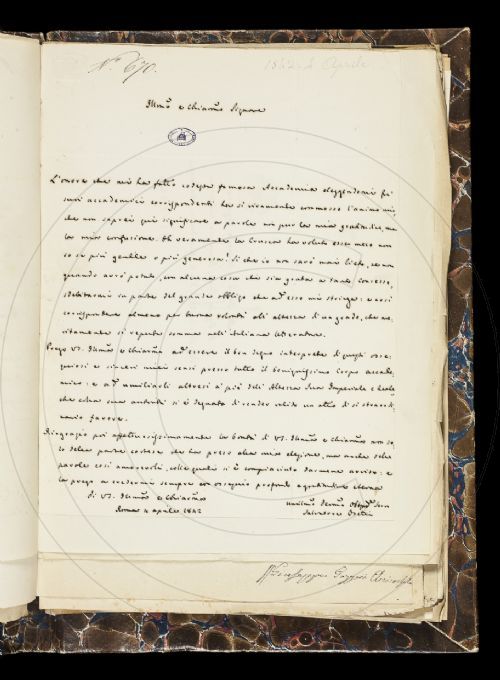 N.° 670.
1842. 4 Aprile
Illmo e Chiarmo Signore
L'onore che mi ha fatto codesta famosa Accademia eleggendomi fra
suoi accademici corrispondenti ha sì vivamente commosso l'animo mio,
che non saprei qui significare a parole non pur la mia gratitudine, ma
la mia confusione. Oh veramente la Crusca ha voluto esser meco non
so se più gentile o più generosa! Sì che io non sarò mai lieto, se non
quando avrò potuto, con alcuna cosa che sia grata a tanto consesso,
sdebitarmi in parte del grande obbligo che ad esso mi stringe: e così
corrispondere almeno per buona volontà all'altezza di un grado, che me-
ritamente si reputa sommo nell'italiana letteratura.
Prego VS. Illma e Chiarma ad essere il ben degno interprete di questi osse-
quiosi e sinceri miei sensi presso tutto il benignissimo corpo accade-
mico: e ad umiliarli altresì a' piè dell'Altezza Sua Imperiale e Reale
che colla sua autorità si è degnata di render valido un atto di sì straordi-
nario favore.
Ringrazio poi affettuosissimamente la bontà di VS. Illma e Chiarma non so-
lo della parte cortese che ha preso alla mia elezione, ma anche delle
parole così amorevoli, colle quali si è compiaciuta darmene avviso: e
la prego a credermi sempre con ossequio profondo e gratitudine eterna
di VS. Illma e Chiarma
Roma 4 aprile 1842
Umilmo Devmo Obbmo Serv
Salvatore Betti
Giuseppe